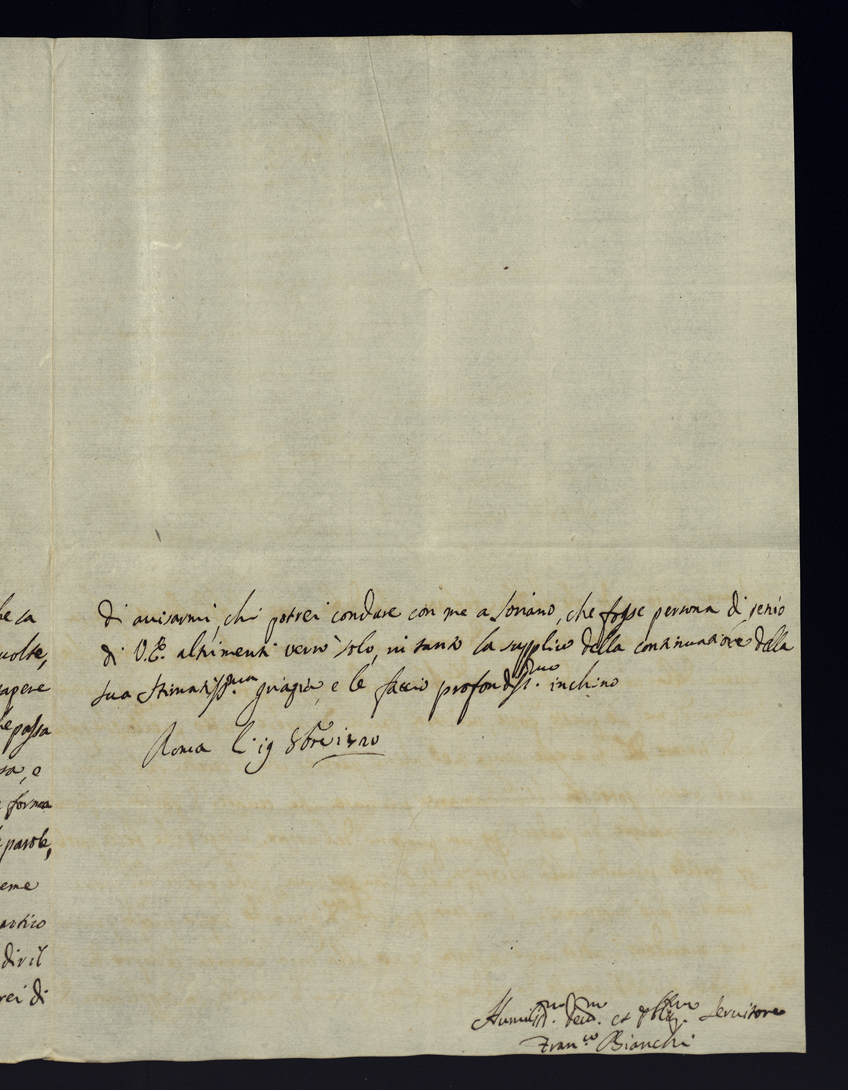 he sa
uolte,
sapere
he passa
sa, e
forma
parole,
eme
artico
dir il
rei di
di auisarmi, chi potrei condure con me a Soriano, che fosse persona di genio
di V.E. altrimenti verrò solo, in tanto la supplico della continuazione della
sua stimatiss.ma grazia, e le faccio profondiss.mo inchino
Roma li 19 8bre 1720
Humiliss.mo deu.mo et obblig.mo seruitore
Fran.co Bianchi